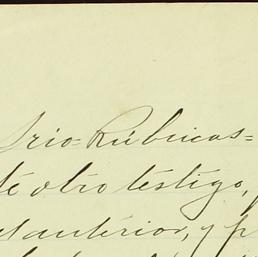 srio=Rúbricas=
te otro testigo,
l anterior, y p